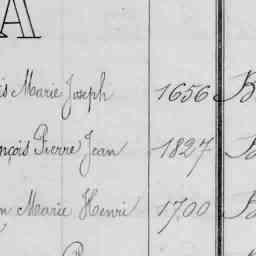 A
is Marie Joseph 1656 B
nçois Pierre Jean 1827 B
n Marie Henri 1700 B